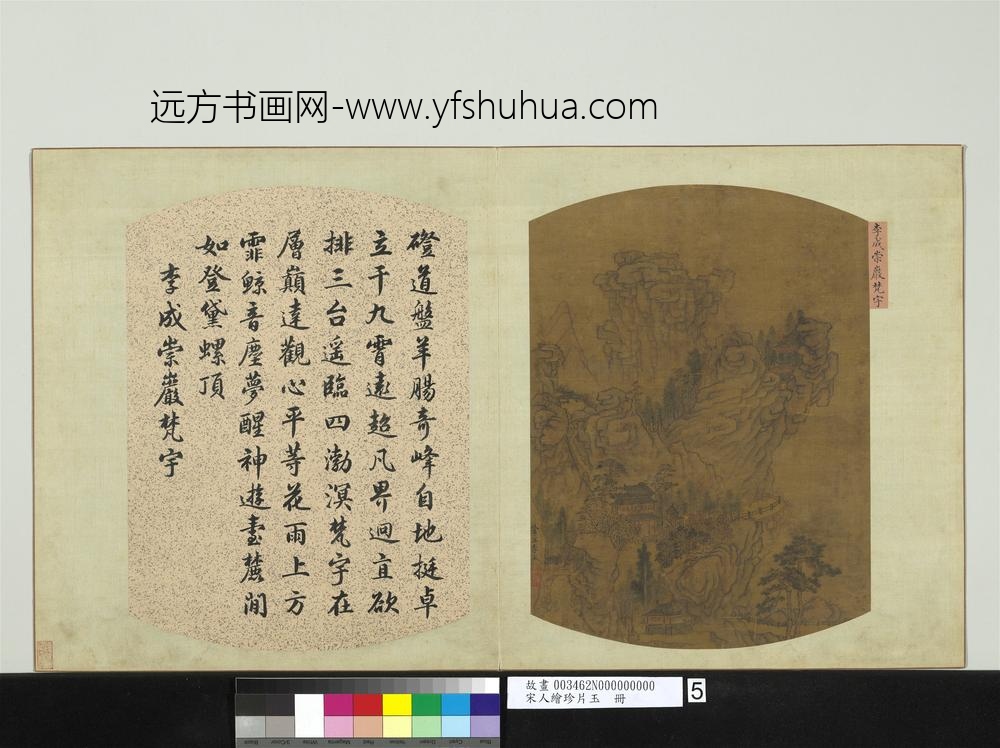 远方书画网-www.yfshuhua.com
李成崇巖梵宇
磴道盤羊腸奇峰自地挺卓
立干九霄遠超凡界迥直欲
排三台遥臨四渤溟梵宇在
層巔達觀心平等花雨上方
霏鲸音塵夢醒神遊畫麓間
如登黛螺頂
李成崇巖梵宇
故畫 003462N000000000
宋人繪珍片玉 冊
5
Blue
Cyan
Green
Yellow
Red
Magenta
White
3/Color
Black